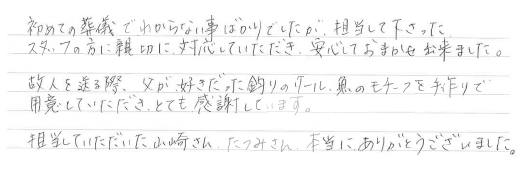 初めての葬儀でわからない事ばかりでしたが、担当して下さった
スタッフの方に親切に対応していただき、安心しておまかせ出来ました。
故人を送る際、父が好きだった釣りのリール、魚のモチーフを手作りで
用意していただき、とても感謝しています。
担当していただいた山崎さん、たつみさん、本当にありがとうございました。